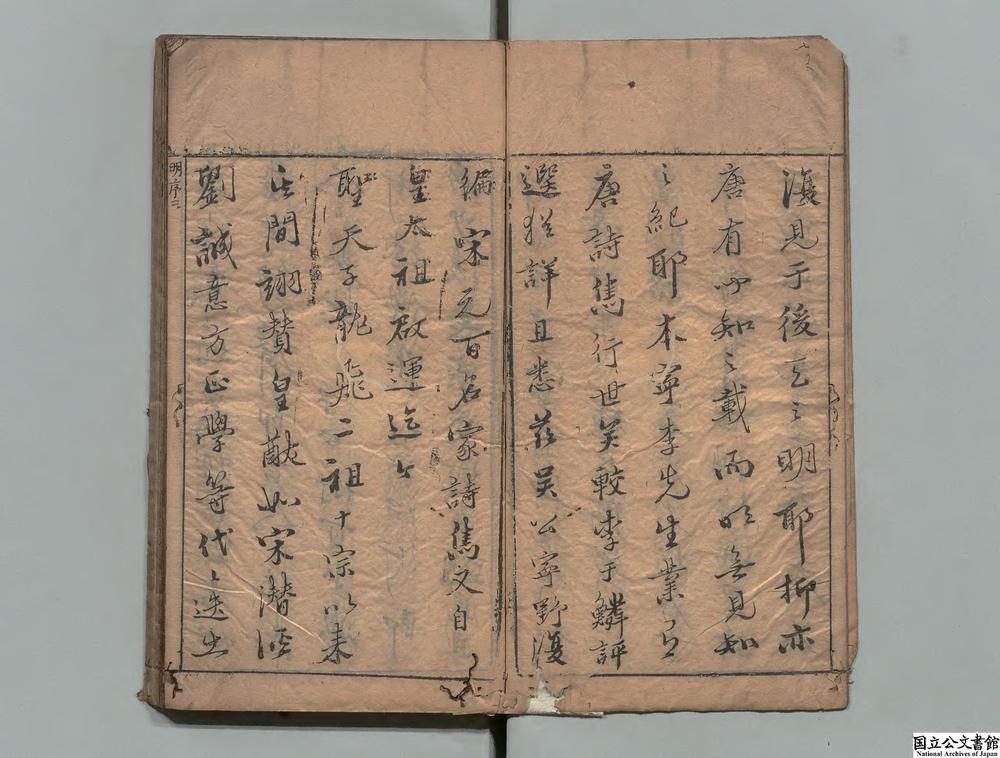 復見于後云云明耶抑亦
唐有聞知之載而明無見知
之紀耶本寧李先生業已
唐詩雋行世矣較李于鱗評
選猶詳且悉茲吳公寧野復
編 宋元百名家詩雋文自
皇太祖啟運迄今
聖天子龍飛二祖十宗以來
其間翊贊皇猷如宋潛溪
劉誠意方正學等代々迭出
明序三
国立公文書館
National Archives of Japan